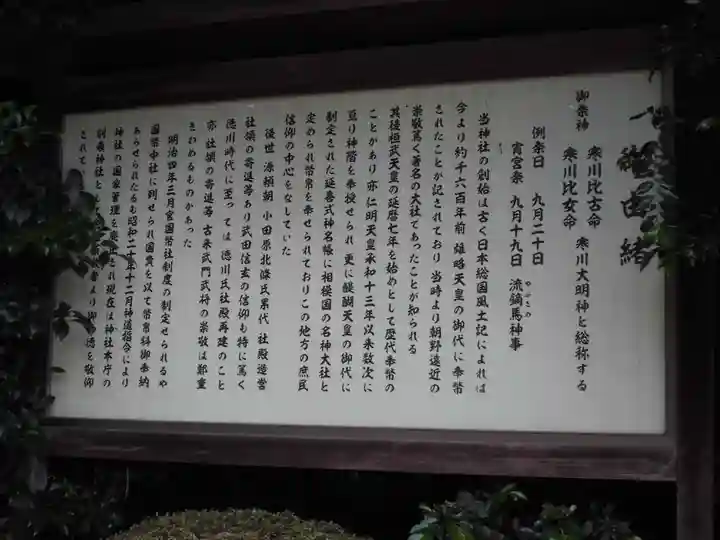 御由緒
御祭神 寒川比古命 寒川大明神と総称する
寒川比女命
例祭日 九月二十日
宵宮祭 九月十九日 流鏑馬神事
やぶさめ
当神社の創始は古く日本総国風土記によれば
今より約千六百年前 雄略天皇の御代に奉幣
されたことが記されており 当時より朝野遠近の
崇敬篤く著名の大社であったことが知られる
其後桓武天皇の延暦七年を始めとして歴代奉幣の
ことがあり 亦仁明天皇承和十三年以来数次に
亘り神階を奉授せられ 更に醍醐天皇の御代に
制定された延喜式神名帳に相模国の名神大社と
定められ幣帛を奉せられておりこの地方の庶民
信仰の中心をなしていた
後世 源頼朝 小田原北條氏累代 社殿造営
社領の寄進等あり武田信玄の信仰も特に篤く
徳川時代に至っては 徳川氏社殿再建のこと
亦社領の寄進等 古来武門武将の崇敬は鄭重
をきわめるものがあった
明治四年三月官国幣社制度の制定せられるや
国幣中社に列せられ国費を以て幣帛料御奉納
あらせられたるも昭和二十年十二月神道指令により
神社の国家管理を廃止され現在は神社本庁の
別表神社として 者より御 徳を敬仰
されて